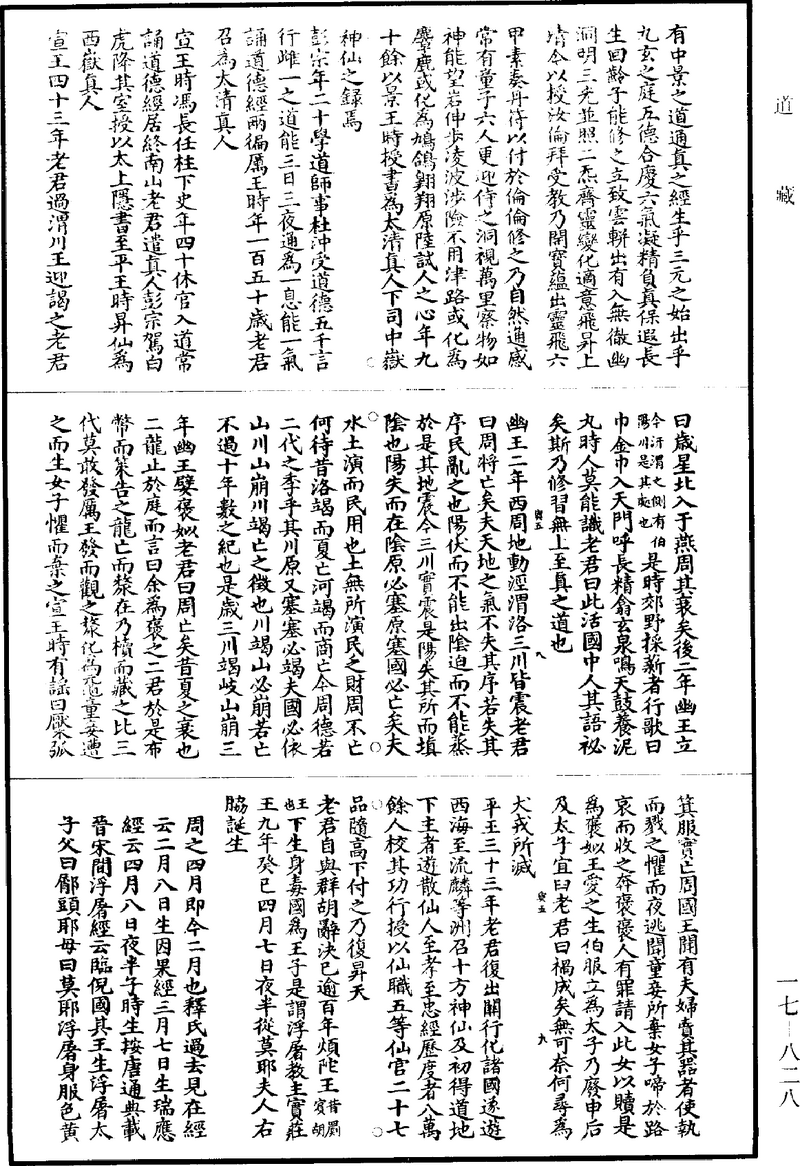 道藏
有中景之道通真之經生乎三元之始出乎
九玄之庭五德合慶六氣凝精負真保遐長
生回齡子能修之立致雲軿出有入無徹幽
洞明三光並照二炁齊靈變化適意飛昇上
清今以授汝倫拜受教乃開寶蘊出靈飛六
甲素奏丹符以付於倫倫修之乃自然通感
常有童子六人更迎侍之洞視萬里察物如
神能望岩伸步淩波涉險不用津路或化為
麞鹿或化為鳩鴿翱翔原陸試人之心年九
十餘以景王時授書為太清真人下司中嶽
神仙之錄焉
彭宗年二十學道師事杜沖受道德五千言
行雌一之道能三日三夜通為一息能一氣
誦道德經兩徧厲王時年一百五十歲老君
召為太清真人
宣王時馮長任柱下史年四十休官入道常
誦道德經居終南山老君遣真人彭宗駕白
虎降其室授以太上隱書至平王時昇仙為
西嶽真人
宣王四十三年老君過渭川王迎謁之老君
曰歲星北入于燕周其衰矣後二年幽王立
今汧渭之側有伯
陽川是其處也
是時郊野採薪者行歌曰
巾金巾入天門呼長精翕玄泉鳴天鼓養泥
丸時人莫能識老君曰此活國中人其語祕
矣斯乃修習無上至真之道也
幽王二年西周地動涇渭洛三川皆震老君
曰周將亡矣夫天地之氣不失其序若失其
序民亂之也陽伏而不能出陰迫而不能蒸
於是其地震今三川實震是陽失其所而填
陰也陽失而在陰原必塞原塞國必亡矣夫
水土演而民用也土無所演民乏財用不亡
何待昔洛竭而夏亡河竭而商亡今周德若
二代之季乎其川原又塞塞必竭夫國必依
山川山崩川竭亡之徵也川竭山必崩若亡
不過十年數之紀也是歲三川竭岐山崩三
年幽王嬖褒姒老君曰周亡矣昔夏之衰也
二龍止於庭而言曰余為褒之二君於是布
幣而策告之龍亡而漦在乃櫝而藏之比三
代莫敢發厲王發而觀之漦化為黿童妾遭
之而生女子懼而棄之宣王時有謠曰檿弧
箕服實亡周國王聞有夫婦賣其器者使執
而戮之懼而夜逃聞童妾所棄女子啼於路
哀而收之奔褒褒人有罪請入此女以贖是
為褒姒王愛之生伯服立為太子乃廢申后
及太子宜臼老君曰禍成矣無可奈何尋為
犬戎所滅
平王三十三年老君復出關行化諸國遂遊
西海至流麟等洲召十方神仙及初得道地
下主者遊散仙人至孝至忠經歷度者八萬
餘人校其功行授以仙職五等仙官二十七
品隨高下付之乃復昇天
老君自與群胡辭決已逾百年煩陀王
昔罽賓胡
王也
下生身毒國為王子是謂浮屠教主實莊
王九年癸巳四月七日夜半從莫耶夫人右
脇誕生
周之四月即今二月也釋氏過去見在經
云二月八日生因果經三月七日生瑞應
經云四月八日夜半子時生按唐通典載
晉宋間浮屠經云臨倪國其王生浮屠太
子父曰屬頭耶母曰莫耶浮屠身服色黄
一七—八二八